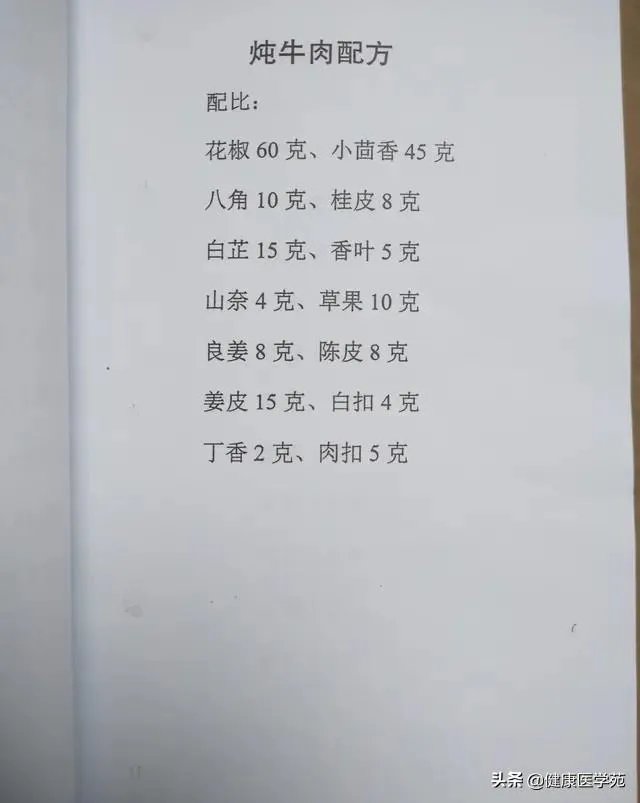 炖牛肉配方
配比：
花椒 60 克、小茴香 45 克
八角 10 克、桂皮 8 克
白芷 15 克、香叶 5 克
山奈 4 克、草果 10 克
良姜 8 克、陈皮 8 克
姜皮 15 克、白扣 4 克
丁香 2 克、肉扣 5 克
头条 @健康医学苑